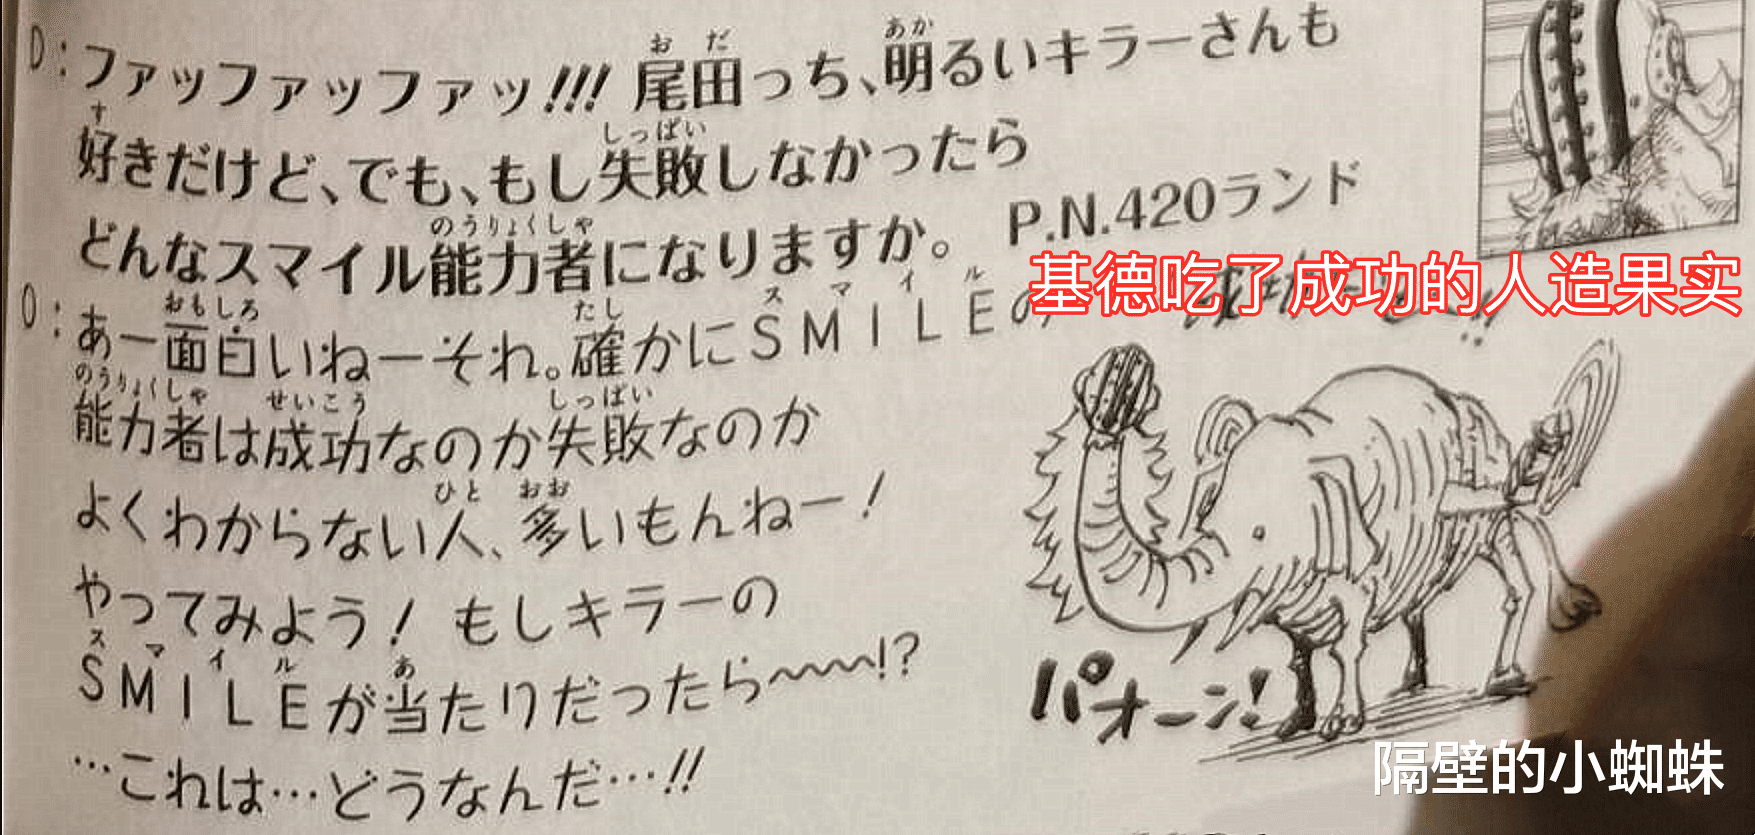 D：ファッファッファッ!!! 尾田っち、明るいキラーさんも
好きだけど、でも、もし失敗しなかったら
どんなスマイル能力者になりますか。 P.N.420ランド
O：あー面白いねーそれ。確かにSMILEの
能力者は成功なのか失敗なのか
よくわからない人、多いもんねー！
やってみよう！ もしキラーの
SMILEが当たりだったら〜〜〜!?
…これは…どうなんだ…!!
基德吃了成功的人造果实
パオーン!
隔壁的小蜘蛛